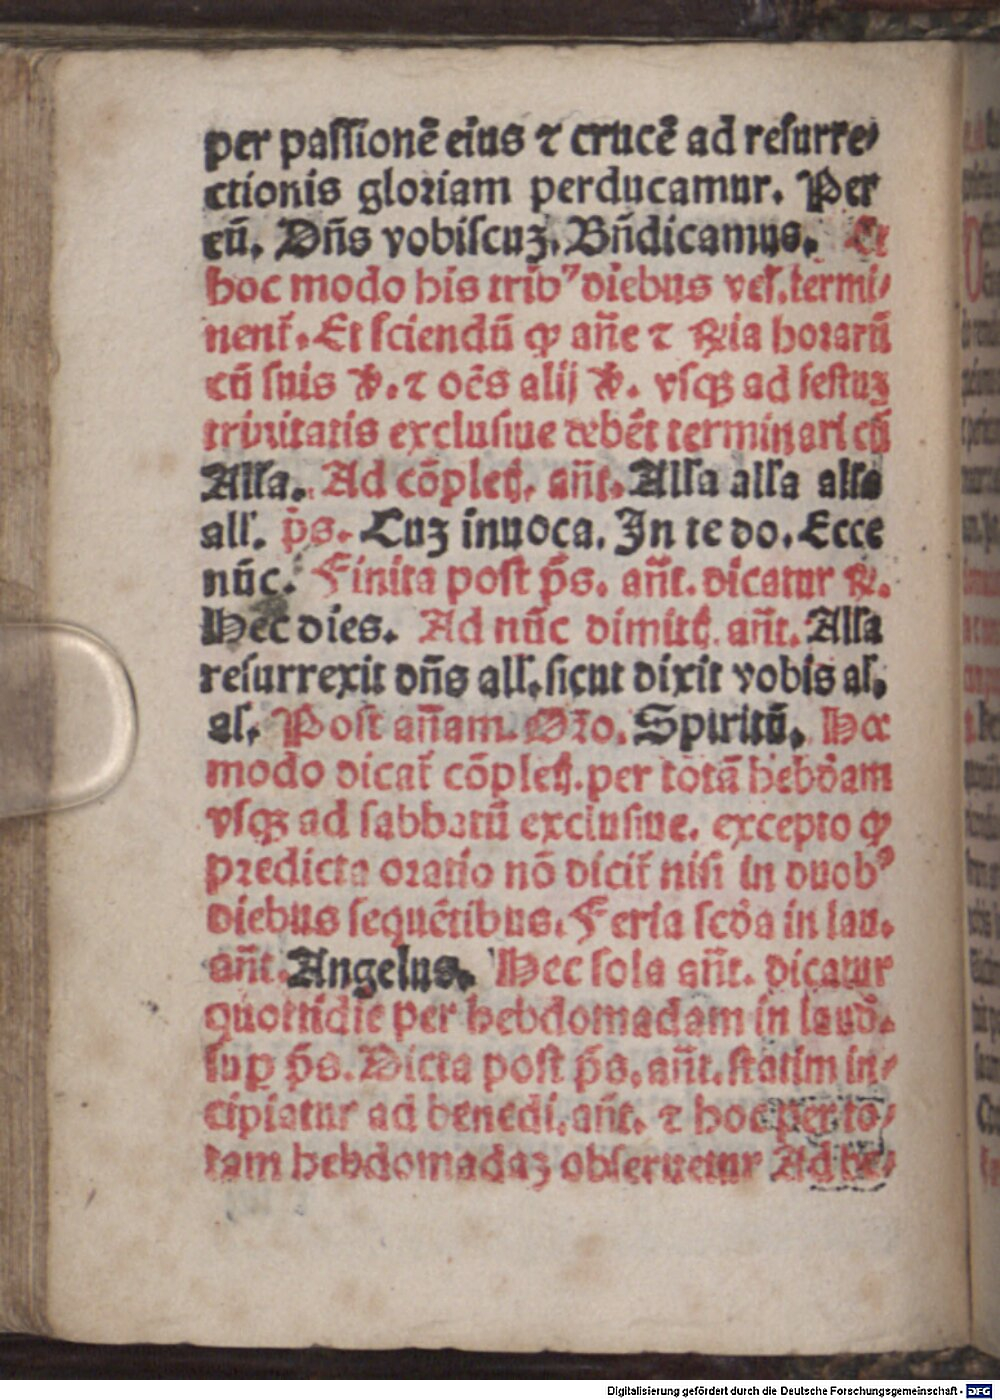 per passionē eius ⁊ crucē ad resurre⸗
ctionis gloriam perducamur. Per
eū. Dn̄s vobiscuꝫ. Bn̄dicamus. Et
hoc modo his tribꝰ diebus ves̄. termi⸗
nent᷑. Et sciendū ꝙ an̄e ⁊ ℞ia horarū
cū suis ℣. ⁊ oēs alij ℣. vsqꝫ ad festuꝫ
trinitatis exclusiue debēt terminari cū
Alſa. Ad cōplet̄. an̄t. Alſa alſa alſa
all'. p̄s. Cuꝫ inuoca. In te do. Ecce
nūc. Finita post p̄s. an̄t. dicatur ℞.
Hec dies. Ad nūc dimitt̄. an̄t. Alſa
resurrexit dn̄s all'. sicut dixit vobis al'.
al'. Post an̄am. Or̄o. Spiritū. Hoc
modo dicat᷑ cōplet̄. per totā hebdōam
vsqꝫ ad sabbatū exclusiue. excepto ꝙ
predicta oratio nō dicit᷑ nisi in duobꝰ
diebus sequētibus. Feria scd̄a in lau.
an̄t. Angelus. Hec sola an̄t. dicatur
quottidie per hebdomadam in laud̄.
suꝑ p̄s. Dicta post p̄s. an̄t. statim in⸗
cipiatur ad benedi. an̄t. ⁊ hoc per to⸗
tam hebdomadaꝫ obseruetur Ad be⸗
Digitalisierung gefördert durch die Deutsche Forschungsgemeinschaft - DFG